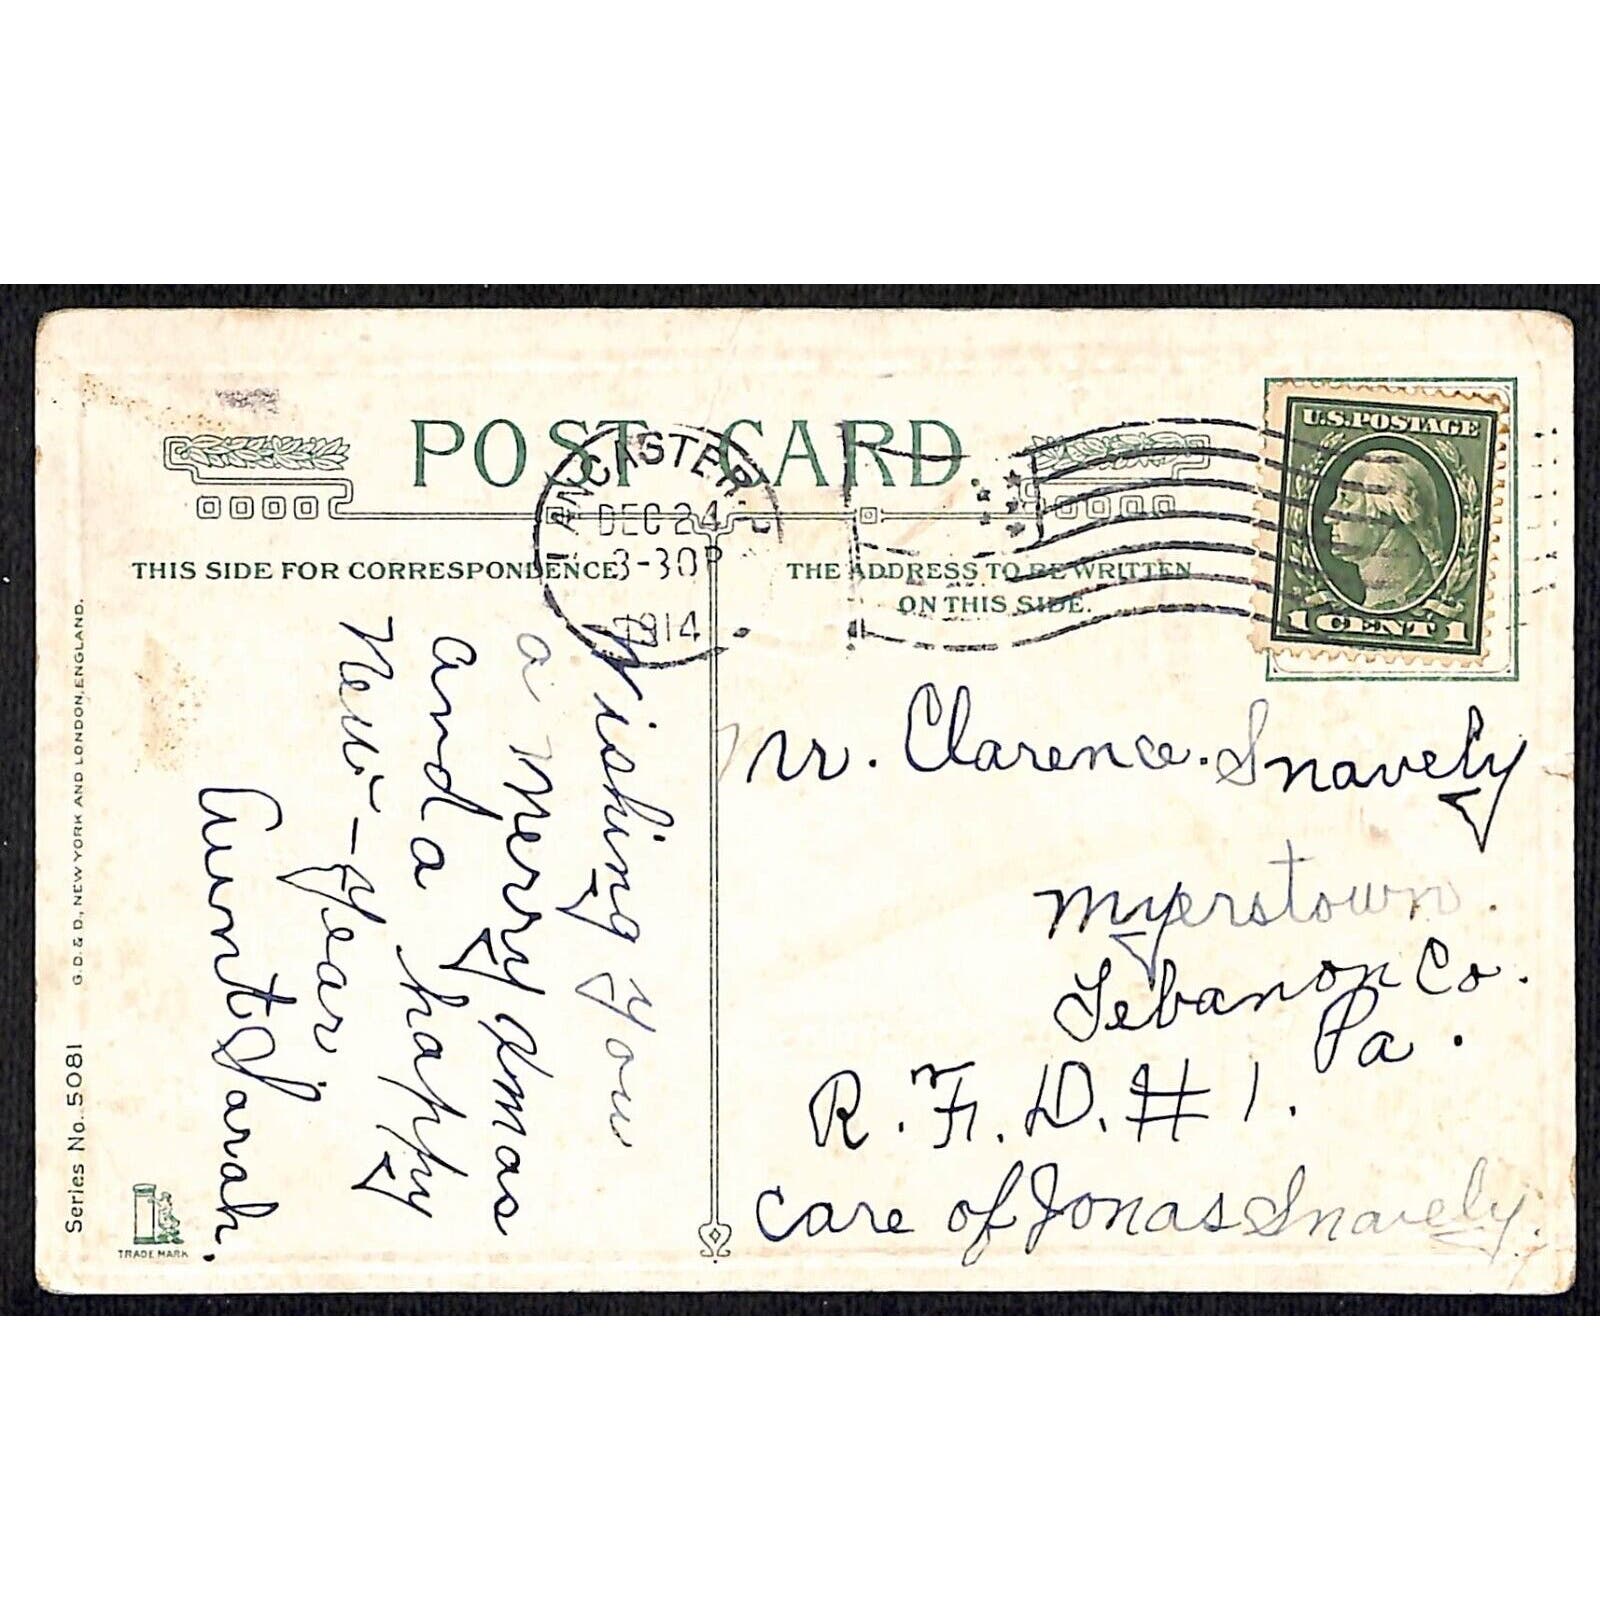 POST CARD
LANCASTER, P
DEC 24
3-30P
1914
U.S. POSTAGE
1 CENT 1
THIS SIDE FOR CORRESPONDENCE
THE ADDRESS TO BE WRITTEN
ON THIS SIDE.
Wishing you
a Merry Xmas
and a happy
New-Year
Aunt Sarah.
Mr. Clarence Snavely
Myerstown.
Lebanon Co.
Pa.
R. F. D. # 1.
care of Jonas Snavely.
G. D. & D., NEW YORK AND LONDON, ENGLAND.
Series No. 5081
TRADE MARK